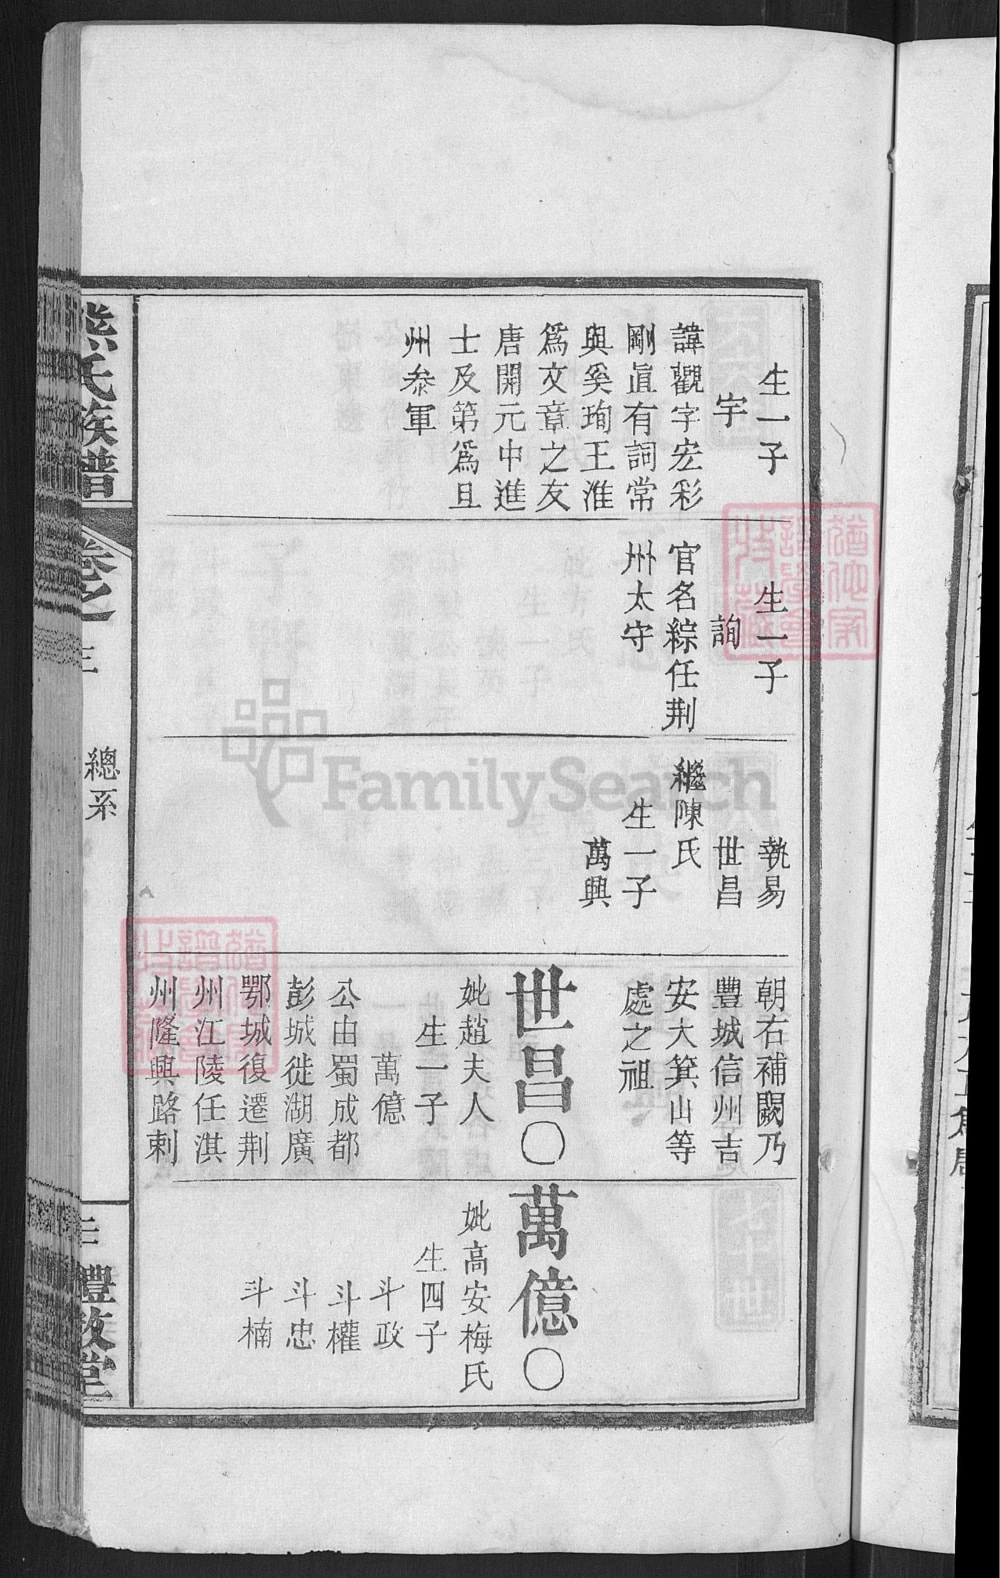 生一子
宇
諱觀字宏彩
剛眞有詞常
與奚珣王淮
爲文章之友
唐開元中進
士及第爲且
州叅軍
生一子
詢
官名綜任荆
州太守
執易
世昌
繼陳氏
生一子
萬興
朝右補闕乃
豐城信州吉
安大箕山等
處之祖
世昌○
妣趙夫人
生一子
萬億
公由蜀成都
彭城徙湖廣
鄂城復遷荆
州江陵任淇
州隆興路刺
萬億○
妣高安梅氏
生四子
斗政
斗權
斗忠
斗楠
熊氏族譜
卷之
總系
禮教堂
FamilySearch